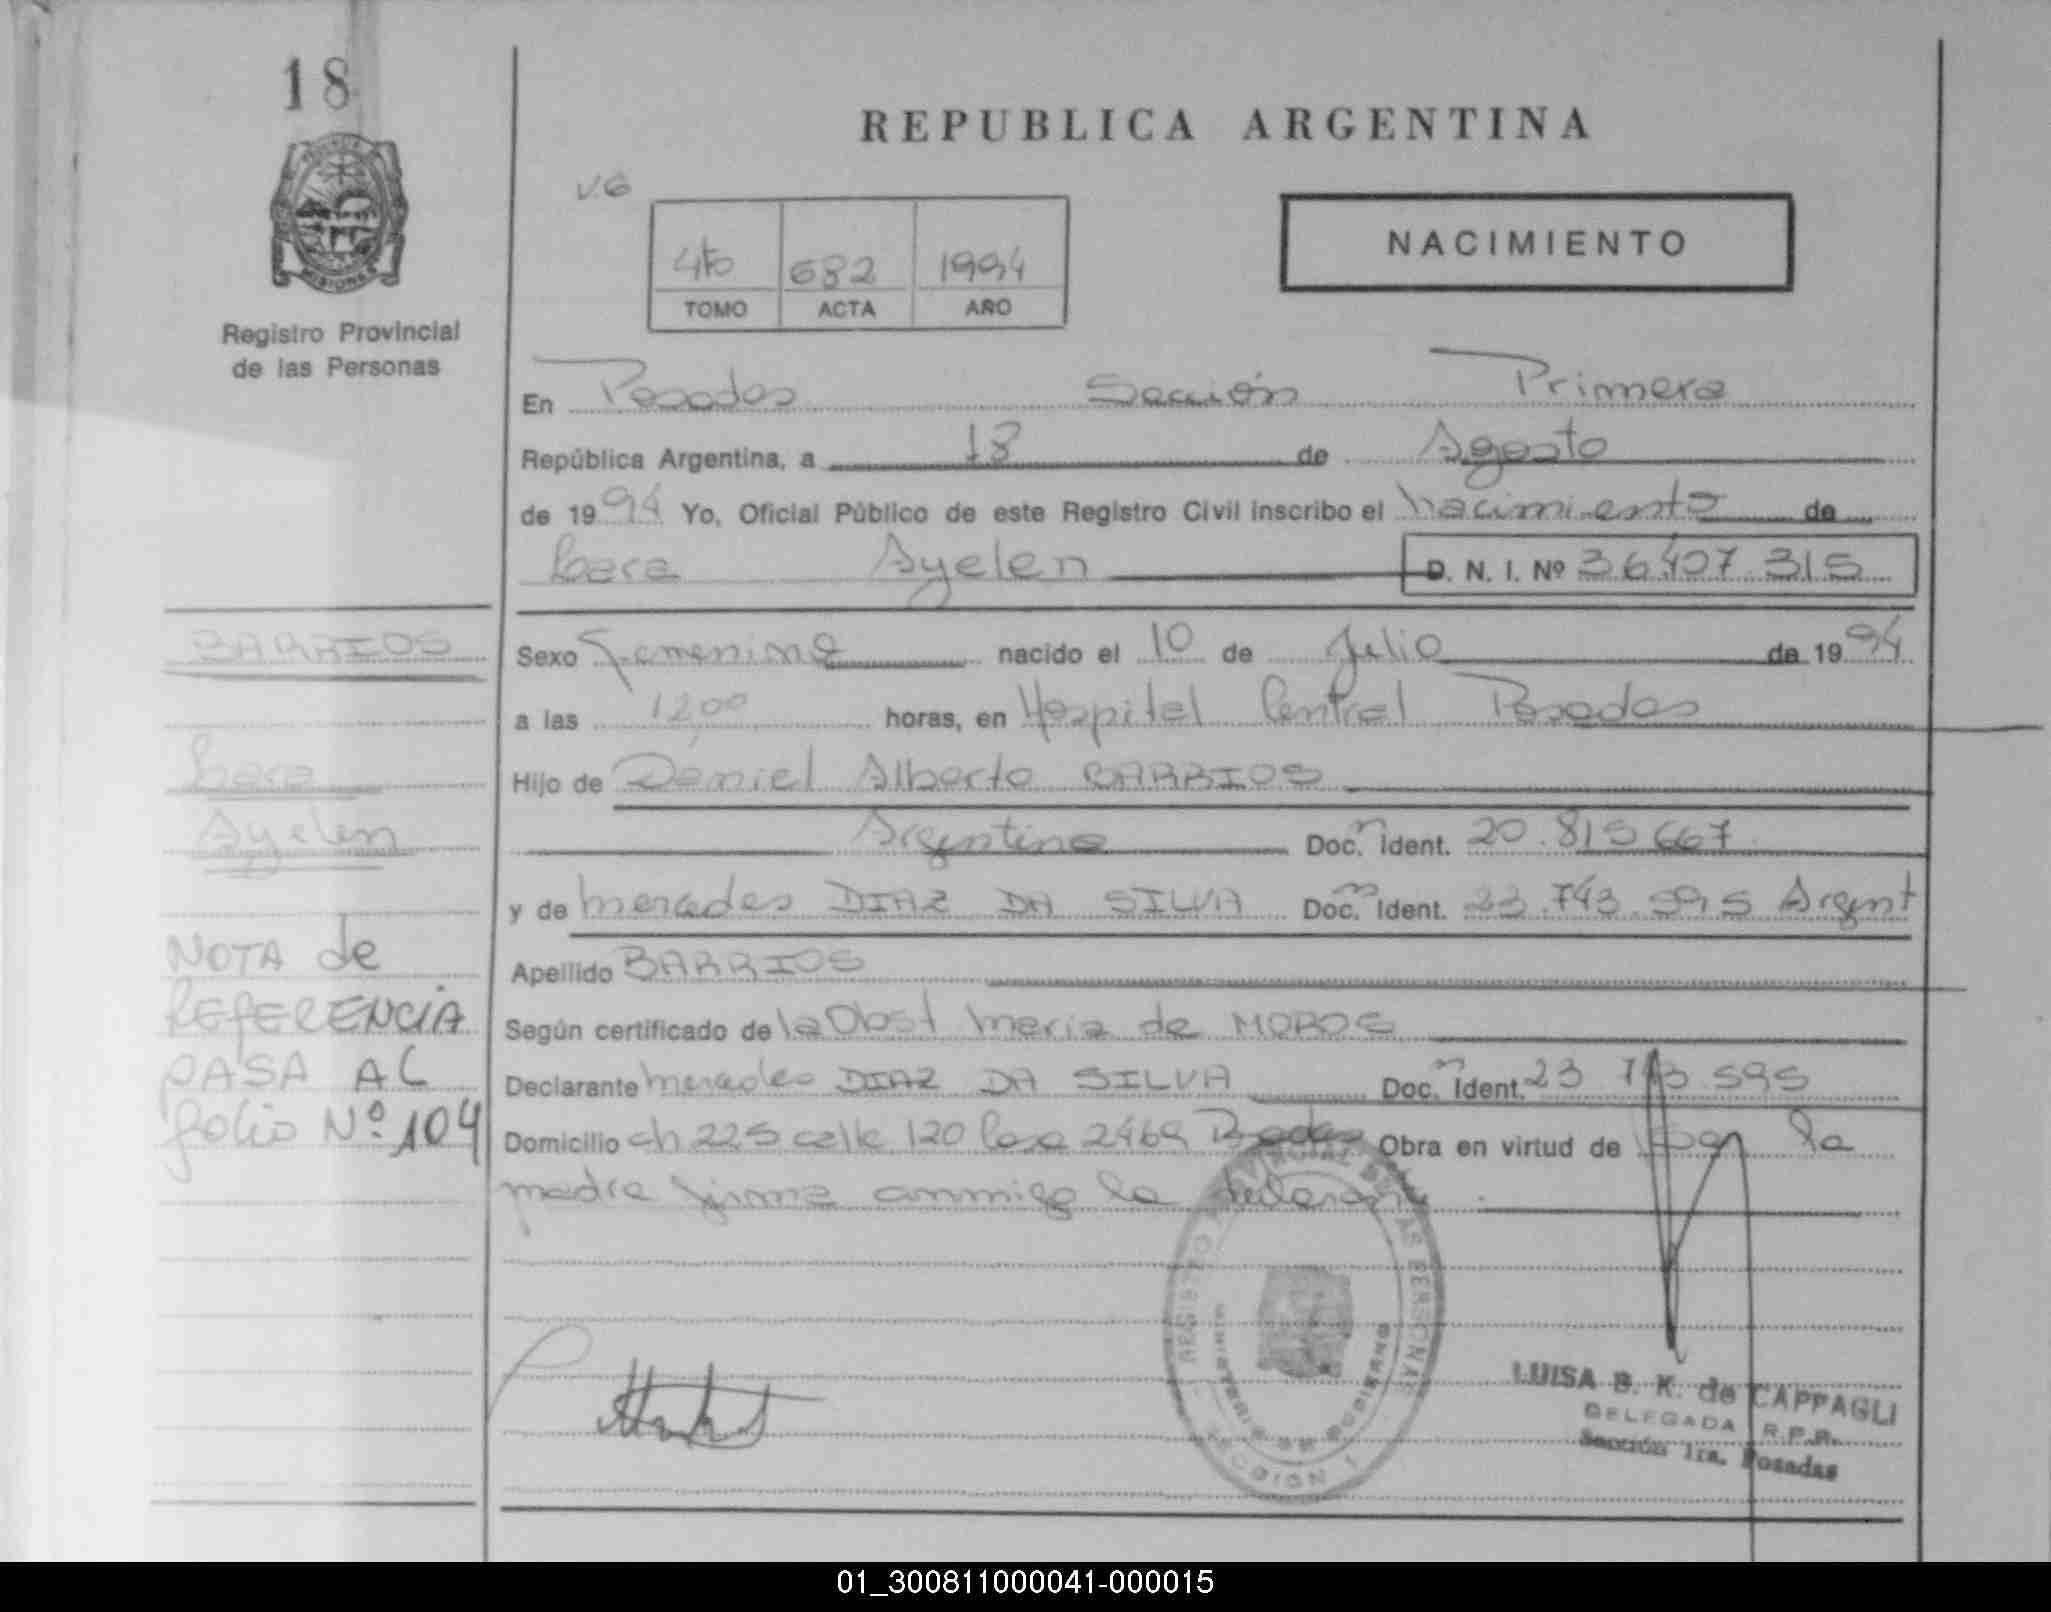 18
REPUBLICA ARGENTINA
MISIONES
Registro Provincial
de las Personas
V6
4to 682 1994
TOMO ACTA AÑO
NACIMIENTO
En Posadas Sección Primera
República Argentina, a 18 de Agosto
de 1994 Yo, Oficial Público de este Registro Civil inscribo el nacimiento de
Ayelen D. N. I. Nº 36.407.315
BARRIOS
Sexo Femenino nacido el 10 de Julio de 1994
a las 12,00 horas, en Hospital Central Posadas
Hijo de Daniel Alberto BARRIOS
Ayelen
Argentino Doc. Ident. 20.815.667
y de Mercedes DIAZ DA SILVA Doc. Ident. 23.743.595 Argent
Apellido BARRIOS
NOTA de
REFERENCIA
PASA AL
folio Nº 104
Según certificado de la Obst Maria de MOROS
Declarante Mercedes DIAZ DA SILVA Doc. Ident. 23 743 595
Domicilio ch 225 calle 120 casa 2469 Posadas Obra en virtud de Ley la
madre firma conmigo la declarante
REGISTRO PROVINCIAL DE LAS PERSONAS
MINISTERIO DE GOBIERNO
SECCION 1
LUISA B. K. de CAPPAGLI
DELEGADA R.P.P.
Sección 1ra. Posadas
01_300811000041-000015